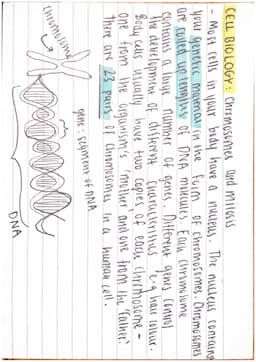 CELL BIOLOGY: Chromosomes and mitosis
- Most cells in your body have a nucleus. The nucleus contains
your genetic material in the form of chromosomes. Chromosomes
are coiled up lengths of DNA molecules. Each chromosome
contains a large number of genes. Different genes control
the development of different characteristics e.g hair colour.
Body cells usually have two copies of each chromosome -
one from the organism's 'mother' and one from the 'father'.
there are 23 pairs of chromosomes in a human cell.
chromosome
gene: segment of DNA
DNA